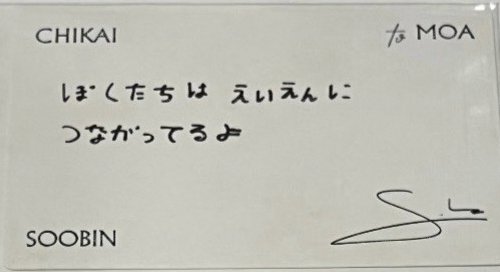 CHIKAI
to MOA
ぼくたちは えいえんに
つながってるよ
SOOBIN